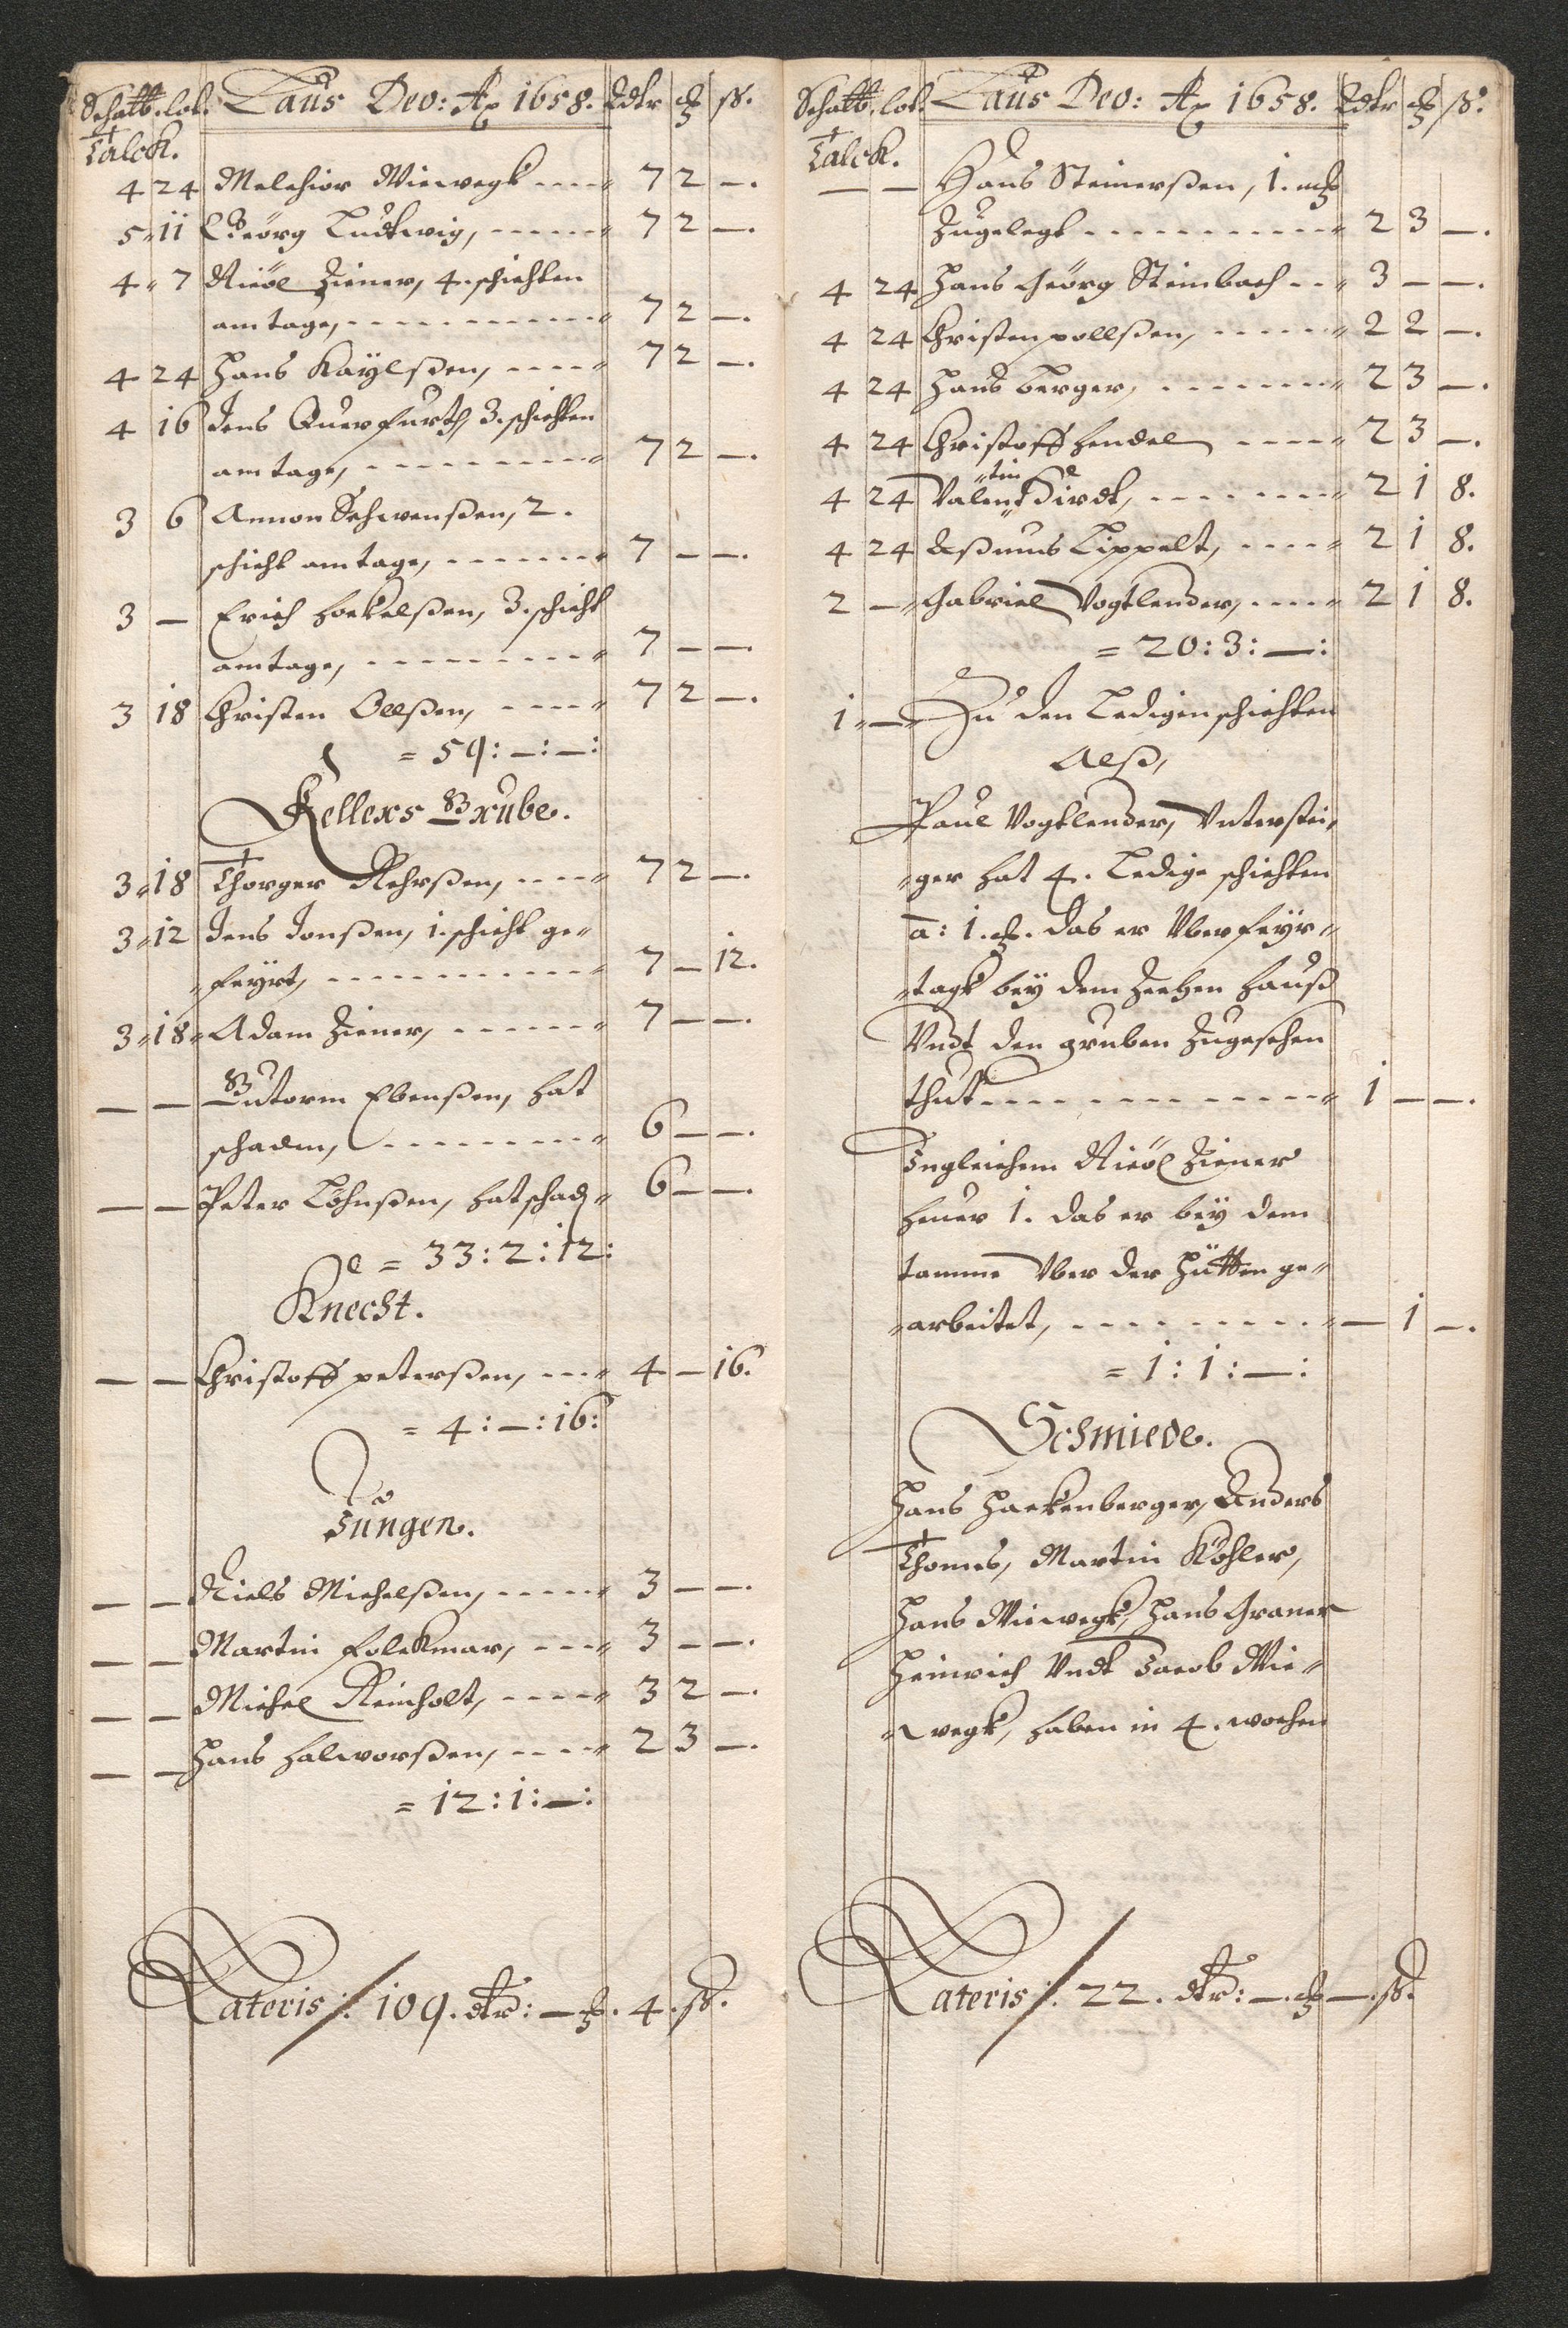 Schatt. lot. Laus Deo: Ao 1658. Rdtr ch ß.
Talck.
4 24 Melchior Viewegk ---- 7 2 —.
5 11 Geörg Ludtwig, ----- 7 2 —.
4 7 Nicöl Ziener, 4. schichten
am tage, ---------- 7 2 —.
4 24 Hans Kaÿlßen, ---- 7 2 —.
4 16 Jens Querfurth, 3. schichten
am tage, --------- 7 2 —.
3 6 Amon Schwenßen, 2.
schicht am tage, ------- 7 — —.
3 — Erich hockelßen, 3. schicht
am tage, --------- 7 — —.
3 18 Christen Ollßen, ---- 7 2 —.
= 59: —: —:
Kellers Grube.
3 18 Thorger Rohrßen, ---- 7 2 —.
3 12 Jens Jonßen, 1. schicht ge-
feyrt, ----------- 7 — 12.
3 18 Adam Ziener, ------ 7 — —.
— — Gutorm Ebenßen, hat
schaden, --------- 6 — —.
— — Peter Löhnßen, hat schad. 6 — —.
= 33: 2: 12:
Knecht.
— — Christoff peterßen, --- 4 — 16.
= 4: —: 16:
Jungen.
— — Niels Michelßen, ----- 3 — —.
— — Martin folckmar, ---- 3 — —.
— — Michel Reinholt, ---- 3 2 —.
— — Hans halworßen, ---- 2 3 —.
= 12: 1: —:
Lateris /: 109. dtr: — ch. 4. ß.
Schatt. lot. Laus Deo: Ao 1658. Rdtr ch ß.
Talck.
— — Hans Steinerßen, 1. ch
Zugelegt ----------- 2 3 —.
4 24 Hans Geörg Steinbach -- 3 — —.
4 24 Christen pollßen, ----- 2 2 —.
4 24 Hans berger, ------- 2 3 —.
4 24 Christoff hendel ---- 2 3 —.
tin
4 24 Valent Hirdt, ------- 2 1 8.
4 24 Aßmus Lippelt, ---- 2 1 8.
2 — Gabriel Vogtlender, ---- 2 1 8.
= 20: 3: —:
1 — Zu den Ledigen schichten
Alß,
Paul Vogtlender, Unterstei-
ger hat 4. Ledige schichten
a: 1. ch. das er Uber feyr-
tagk bey dem Zechen hauß
Undt den gruben Zugesehen
thut ------------- 1 — —.
Ingleichem Nicöl Ziener
hener 1. das er bey dem
tamme Uber der Hütten ge-
arbeitet, --------- — 1 —.
= 1: 1: —:
Schmiede.
Hans Hackenberger, Anders
Thomas, Martin Köhler,
Hans Viewegk, Hans Graner
Heinrich Undt Jacob Vie-
wegk, haben in 4. wochen
Lateris /: 22. dtr: — ch — ß.